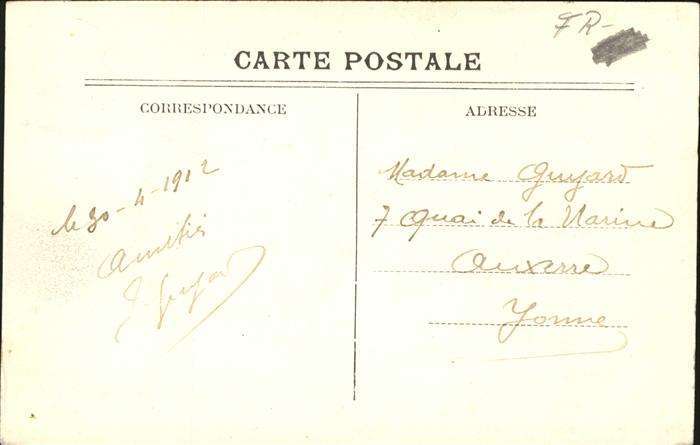 FR-
CARTE POSTALE
CORRESPONDANCE
ADRESSE
le 30-4-1912
Amitiés
J. Guyard
Madame Guyard
7 Quai de la Marine
Auxerre
Yonne